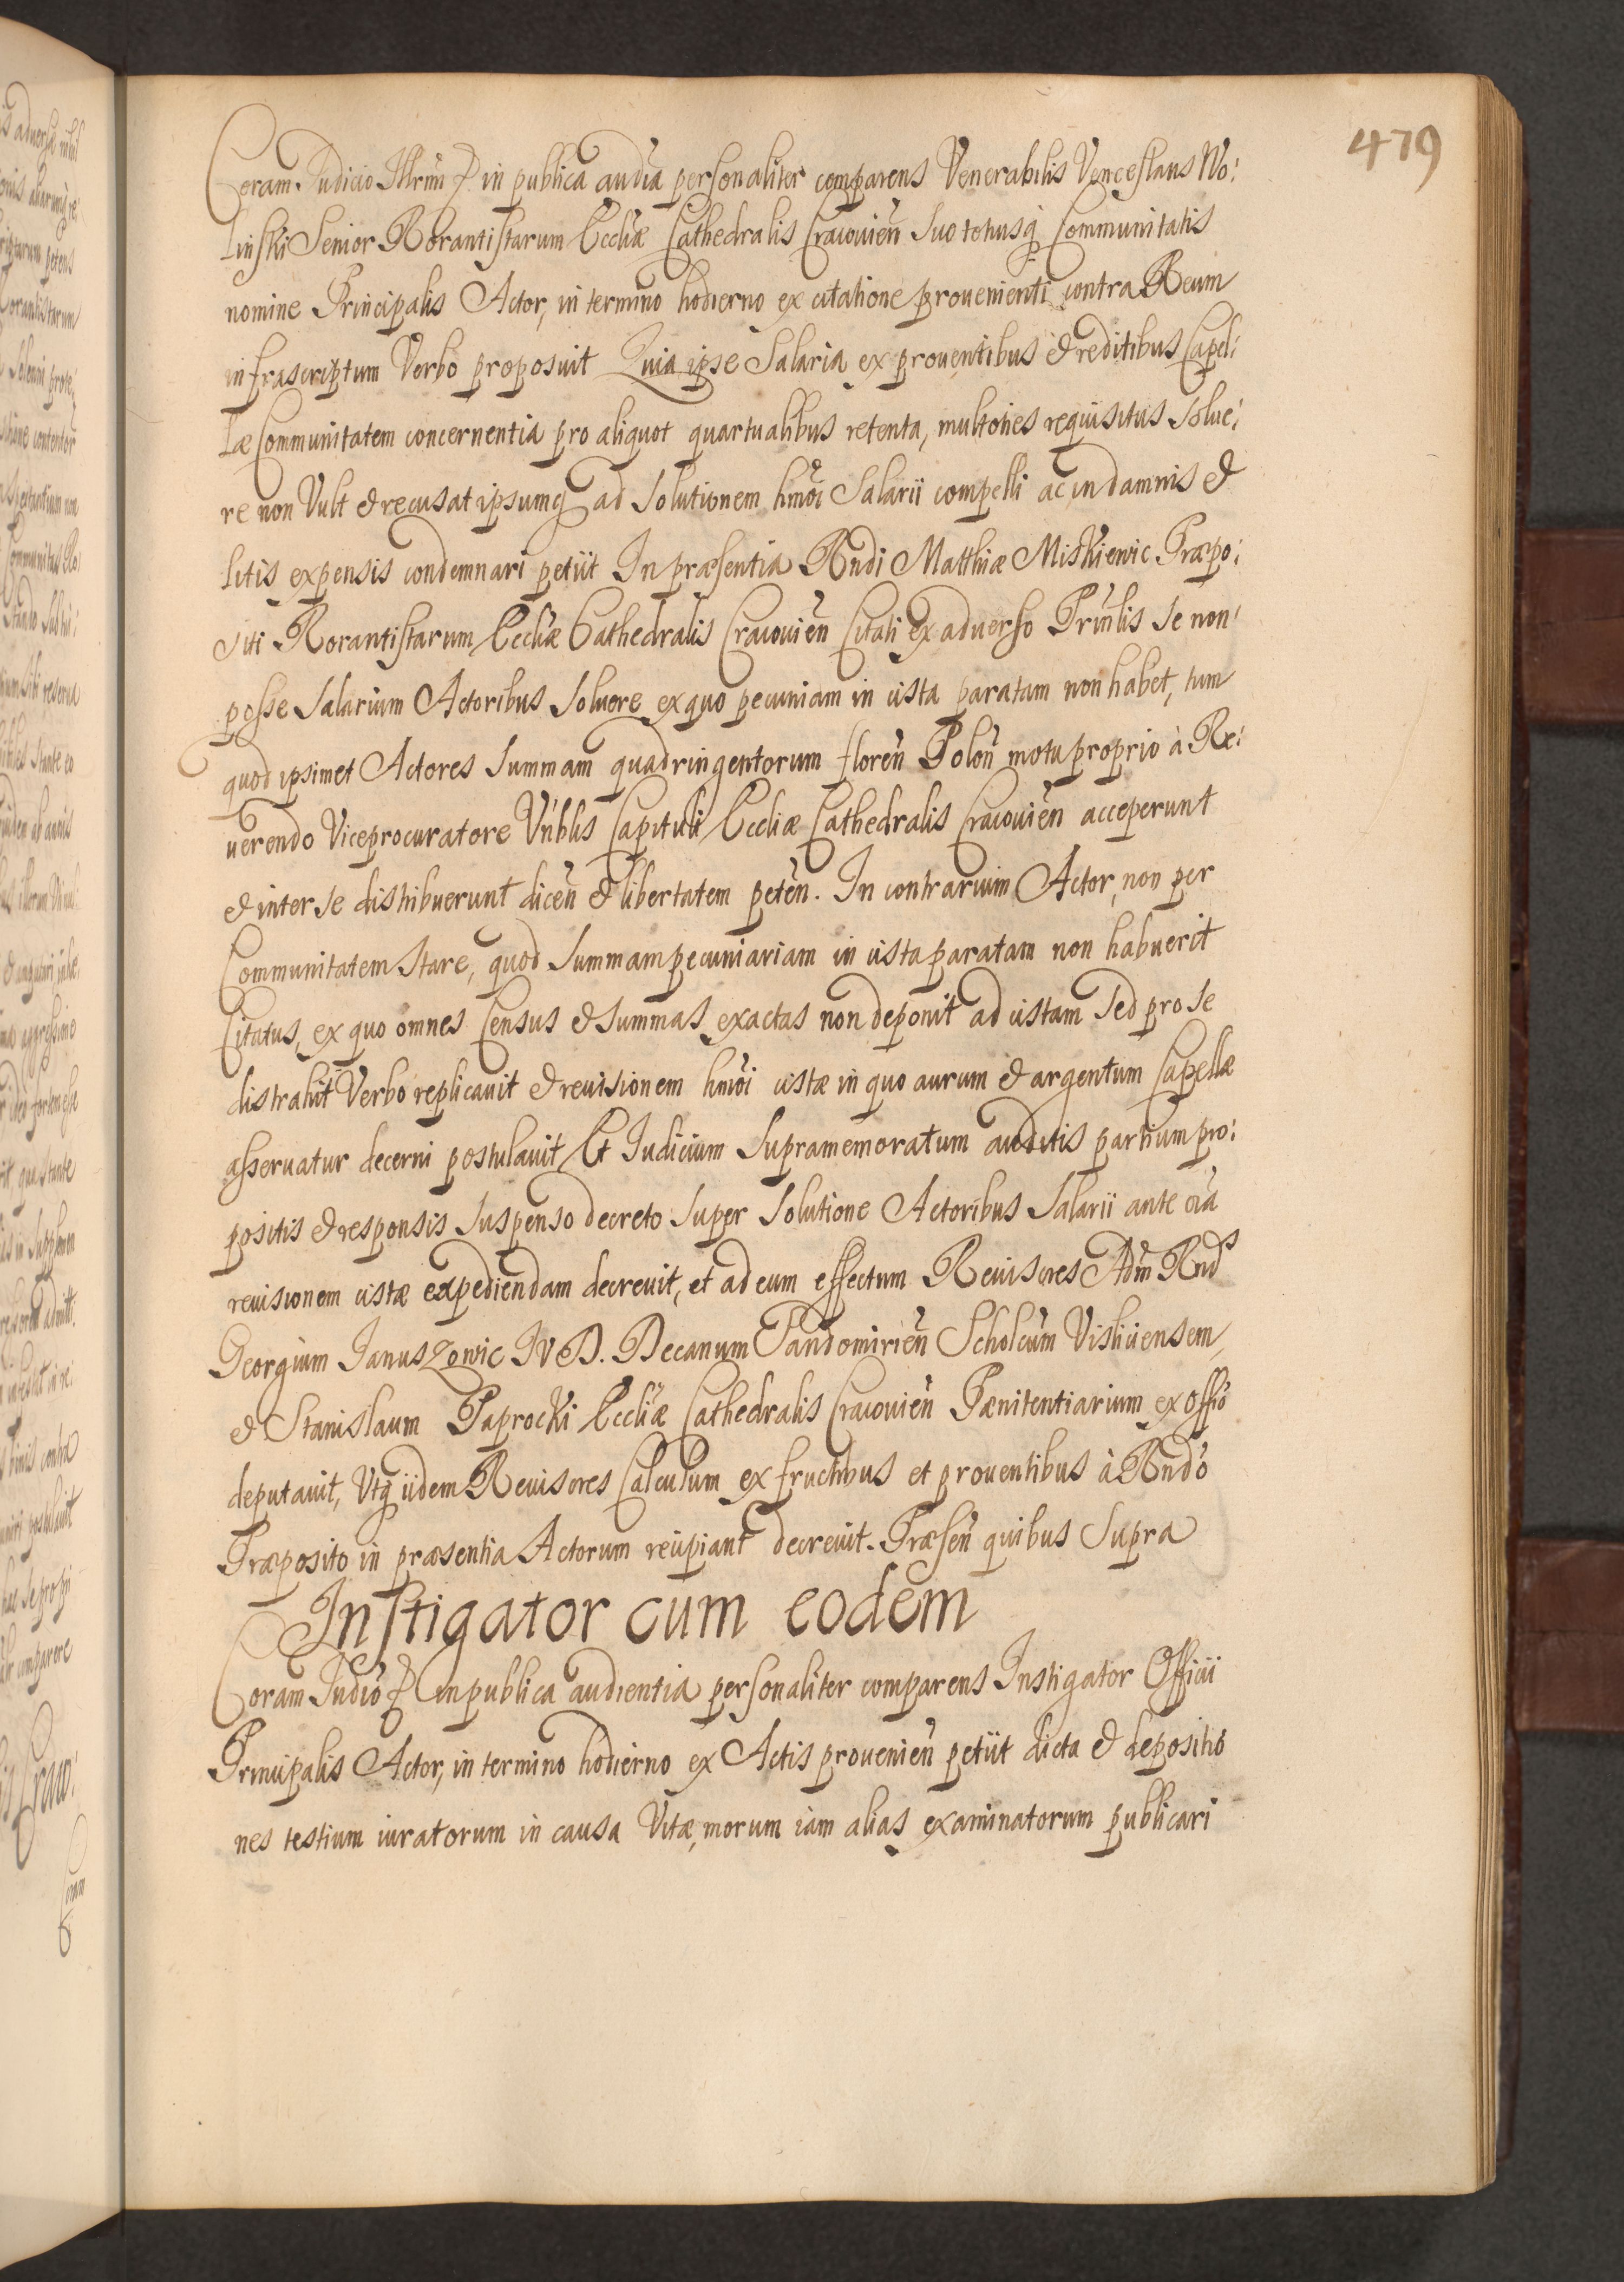 479
Coram Judicio Illrmi &c in publica audia personaliter comparens Venerabilis Venceslaus Wo:
linski Senior Rorantistarum Eccliæ Cathedralis Cracouien̄ suo totiusq; Communitatis
nomine Principalis Actor, in termino hodierno ex citatione prouenienti contra Reum
infrascriptum Verbo proposuit Quia ipse Salaria ex prouentibus & reditibus Capel:
læ Communitatem concernentia pro aliquot quartualibus retenta, multoties requisitus solue:
re non Vult & recusat ipsumq; ad solutionem hmoi Salarii compelli ac in damnis &
litis expensis condemnari petiit In præsentia Rndi Matthiæ Miskiewic Præpo:
siti Rorantistarum Eccliæ Cathedralis Cracouien̄ Citati ex aduerso Prinlis se non
posse Salarium Actoribus soluere ex quo pecuniam in cista paratam non habet, tum
quod ipsimet Actores summam quadringentorum floren̄ Polon̄ motu proprio à Re:
uerendo Viceprocuratore Vnblis Capituli Eccliæ Cathedralis Cracouien̄ acceperunt
& inter se distribuerunt dicen̄ & libertatem peten̄. In contrarium Actor, non per
Communitatem stare, quod summam pecuniariam in cista paratam non habuerit
Citatus, ex quo omnes Census & summas exactas non deponit ad cistam sed pro se
distrahit Verbo replicauit & reuisionem hmoi cistæ in quo aurum & argentum Capellæ
asseruatur decerni postulauit Et Iudicium supramemoratum auditis partium pro:
positis & responsis suspenso decreto super solutione Actoribus Salarii ante oia
reuisionem cistæ expediendam decreuit, et ad eum effectum Reuisores Adm Rnds
Georgium Januszowic IVD. Decanum Sandomirien̄ Scholcum Visliciensem
& Stanislaum Paprocki Eccliæ Cathedralis Cracouien̄ Pænitentiarium ex offio
deputauit, Vtq; iidem Reuisores Calculum ex fructibus et prouentibus à Rndo
Præposito in præsentia Actorum recipiant decreuit. Præsen̄ quibus supra
Instigator cum eodem
Coram Iudio &c in publica audientia personaliter comparens Instigator Officii
Principalis Actor, in termino hodierno ex Actis prouenien̄ petiit dicta & depositio
nes testium iuratorum in causa Vitæ, morum iam alias examinatorum publicari